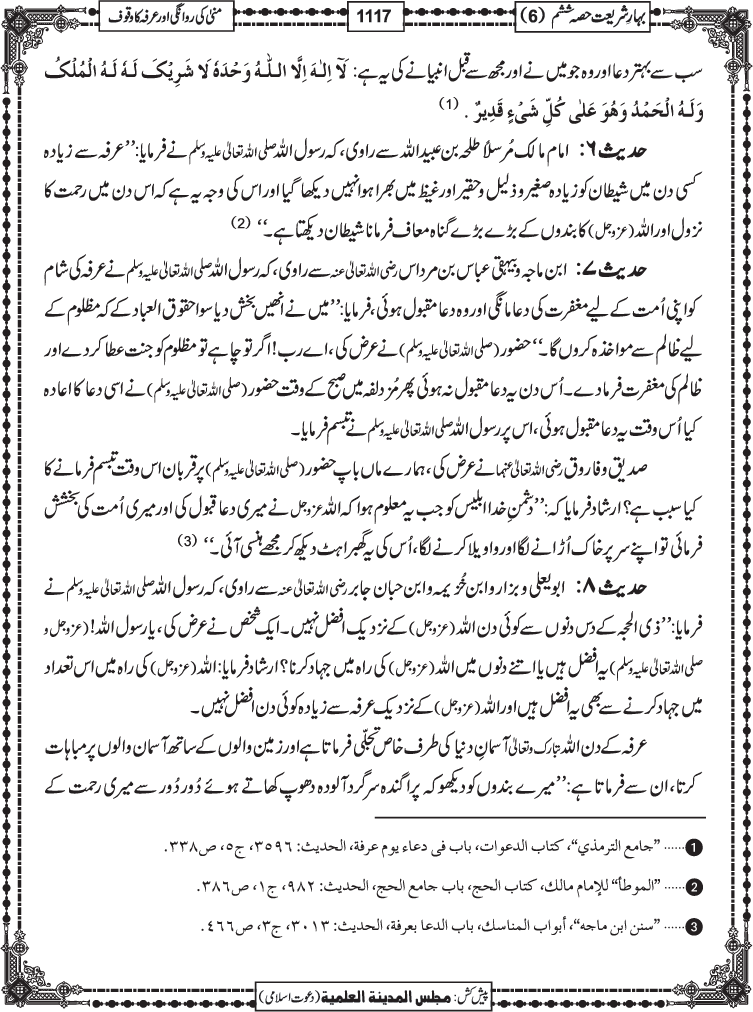 بہارِ شریعت حصہ ششم (6)
1117
منیٰ کی روانگی اور عرفہ کا وقوف
سب سے بہتر دعا اور وہ جو میں نے اور مجھ سے قبل انبیا نے کی یہ ہے: لَآ اِلٰـہَ اِلَّا الـلّٰـہُ وَحْدَہٗ لَا شَرِیْکَ لَـہٗ لَـہُ الْمُلْکُ
وَلَـہُ الْحَمْدُ وَھُوَ عَلٰی کُلِّ شَیْءٍ قَدِیْرٌ . (1)
حدیث ۶: امام مالک مُرسلاً طلحہ بن عبید اللہ سے راوی، کہ رسول اللہ صلی اللہ تعالیٰ علیہ وسلم نے فرمایا: ’’عرفہ سے زیادہ
کسی دن میں شیطان کو زیادہ صغیر و ذلیل و حقیر اور غیظ میں بھرا ہوا نہیں دیکھا گیا اور اس کی وجہ یہ ہے کہ اس دن میں رحمت کا
نزول اور اللہ (عزوجل) کا بندوں کے بڑے بڑے گناہ معاف فرمانا شیطان دیکھتا ہے۔‘‘ (2)
حدیث ۷: ابن ماجہ و بیہقی عباس بن مرداس رضی اللہ تعالیٰ عنہ سے راوی، کہ رسول اللہ صلی اللہ تعالیٰ علیہ وسلم نے عرفہ کی شام
کو اپنی اُمت کے لیے مغفرت کی دعا مانگی اور وہ دعا مقبول ہوئی، فرمایا: ’’میں نے انھیں بخش دیا سوا حقوق العباد کے کہ مظلوم کے
لیے ظالم سے مواخذہ کروں گا۔‘‘ حضور (صلی اللہ تعالیٰ علیہ وسلم) نے عرض کی، اے رب! اگر تو چاہے تو مظلوم کو جنت عطا کر دے اور
ظالم کی مغفرت فرما دے۔ اُس دن یہ دعا مقبول نہ ہوئی پھر مُزدلفہ میں صبح کے وقت حضور (صلی اللہ تعالیٰ علیہ وسلم) نے اسی دعا کا اعادہ
کیا اُس وقت یہ دعا مقبول ہوئی، اس پر رسول اللہ صلی اللہ تعالیٰ علیہ وسلم نے تبسم فرمایا۔
صدیق و فاروق رضی اللہ تعالیٰ عنہما نے عرض کی، ہمارے ماں باپ حضور (صلی اللہ تعالیٰ علیہ وسلم) پر قربان اس وقت تبسم فرمانے کا
کیا سبب ہے؟ ارشاد فرمایا کہ: ’’دشمنِ خدا ابلیس کو جب یہ معلوم ہوا کہ اللہ عزوجل نے میری دعا قبول کی اور میری اُمت کی بخشش
فرمائی تو اپنے سر پر خاک اُڑانے لگا اور واویلا کرنے لگا، اُس کی یہ گھبراہٹ دیکھ کر مجھے ہنسی آئی۔‘‘ (3)
حدیث ۸: ابو یعلیٰ و بزار و ابن خُزیمہ و ابن حبان جابر رضی اللہ تعالیٰ عنہ سے راوی، کہ رسول اللہ صلی اللہ تعالیٰ علیہ وسلم نے
فرمایا: ’’ذی الحجہ کے دس دنوں سے کوئی دن اللہ (عزوجل) کے نزدیک افضل نہیں۔ ایک شخص نے عرض کی، یا رسول اللہ! (عزوجل و
صلی اللہ تعالیٰ علیہ وسلم) یہ افضل ہیں یا اتنے دنوں میں اللہ (عزوجل) کی راہ میں جہاد کرنا؟ ارشاد فرمایا: اللہ (عزوجل) کی راہ میں اس تعداد
میں جہاد کرنے سے بھی یہ افضل ہیں اور اللہ (عزوجل) کے نزدیک عرفہ سے زیادہ کوئی دن افضل نہیں۔
عرفہ کے دن اللہ تبارک وتعالیٰ آسمانِ دنیا کی طرف خاص تجلّی فرماتا ہے اور زمین والوں کے ساتھ آسمان والوں پر مباہات
کرتا، ان سے فرماتا ہے: ’’میرے بندوں کو دیکھو کہ پراگندہ سر گرد آلودہ دھوپ کھاتے ہوئے دُور دُور سے میری رحمت کے
1 ...... "جامع الترمذي"، کتاب الدعوات، باب فی دعاء یوم عرفة، الحدیث: ٣٥٩٦، ج٥، ص٣٣٨.
2 ...... "الموطأ" للإمام مالك، کتاب الحج، باب جامع الحج، الحدیث: ٩٨٢، ج١، ص٣٨٦.
3 ...... "سنن ابن ماجه"، أبواب المناسك، باب الدعا بعرفة، الحدیث: ٣٠١٣، ج٣، ص٤٦٦.
پیش کش: مجلس المدینة العلمیة (دعوتِ اسلامی)